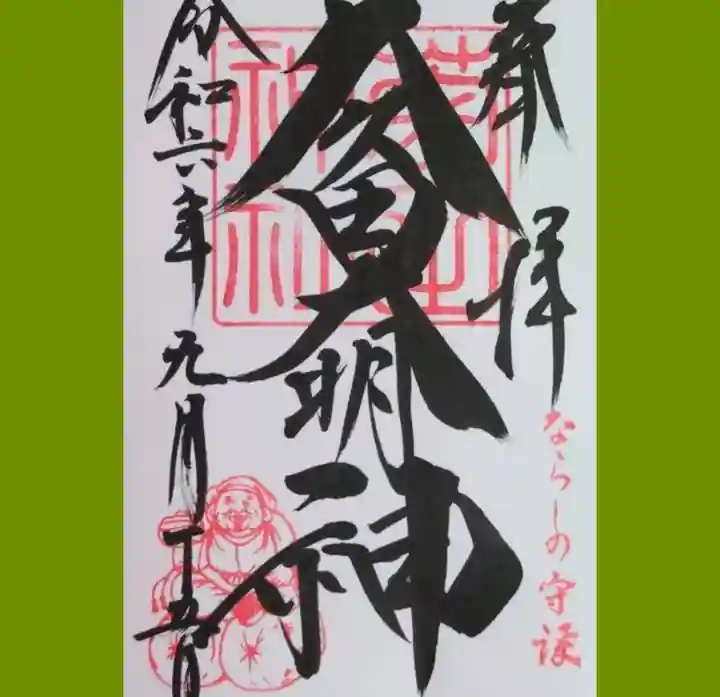 奉拝
ならしの守護
久久田大明神
令和六年九月十五日